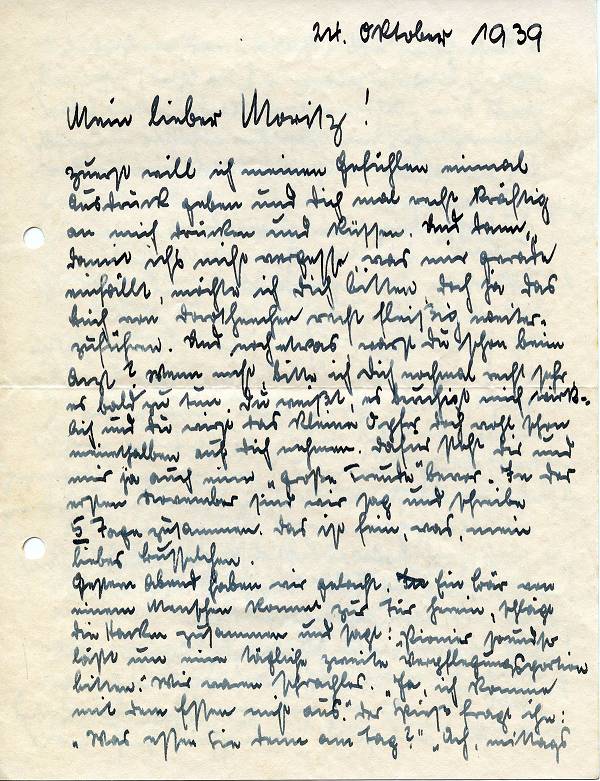 24. Oktober 1939
Mein lieber Moritz!
zuerst will ich meinen Gefühlen einmal
Ausdruck geben und Dich mal recht kräftig
an mich drücken und küssen. Und dann,
damit ich's nicht vergesse, was mir gerade
einfällt, möchte ich Dich bitten doch ja das
Buch von Dorothenchen recht fleißig weiter-
zuführen. Und noch etwas warst Du schon beim
Arzt? Wenn nicht, bitte ich Dich nochmal recht sehr
es bald zu tun. Du weißt, es beruhigt mich wirk-
lich und Du wirst das kleine Opfer doch recht schön
meinthalben auf Dich nehmen. Dafür steht Dir und
mir ja auch eine "große Freude" bevor. In der
ersten November sind wir sag und schreibe
5 Tage zusammen. Das ist fein, was, mein
liebes
Gestern Abend haben wir gelacht. Ein Bär von
einem Menschen kommt zur Tür herein, schlägt
die Hacken zusammen und sagt: "Pionier soundso
läßt um eine tägliche zweite Verpflegungsportion
bitten." Wir waren sprachlos. "Ja, ich komme
mit dem Essen nicht aus." Der Spieß fragt ihn:
"Was essen Sie denn am Tag?" "Ach, mittags